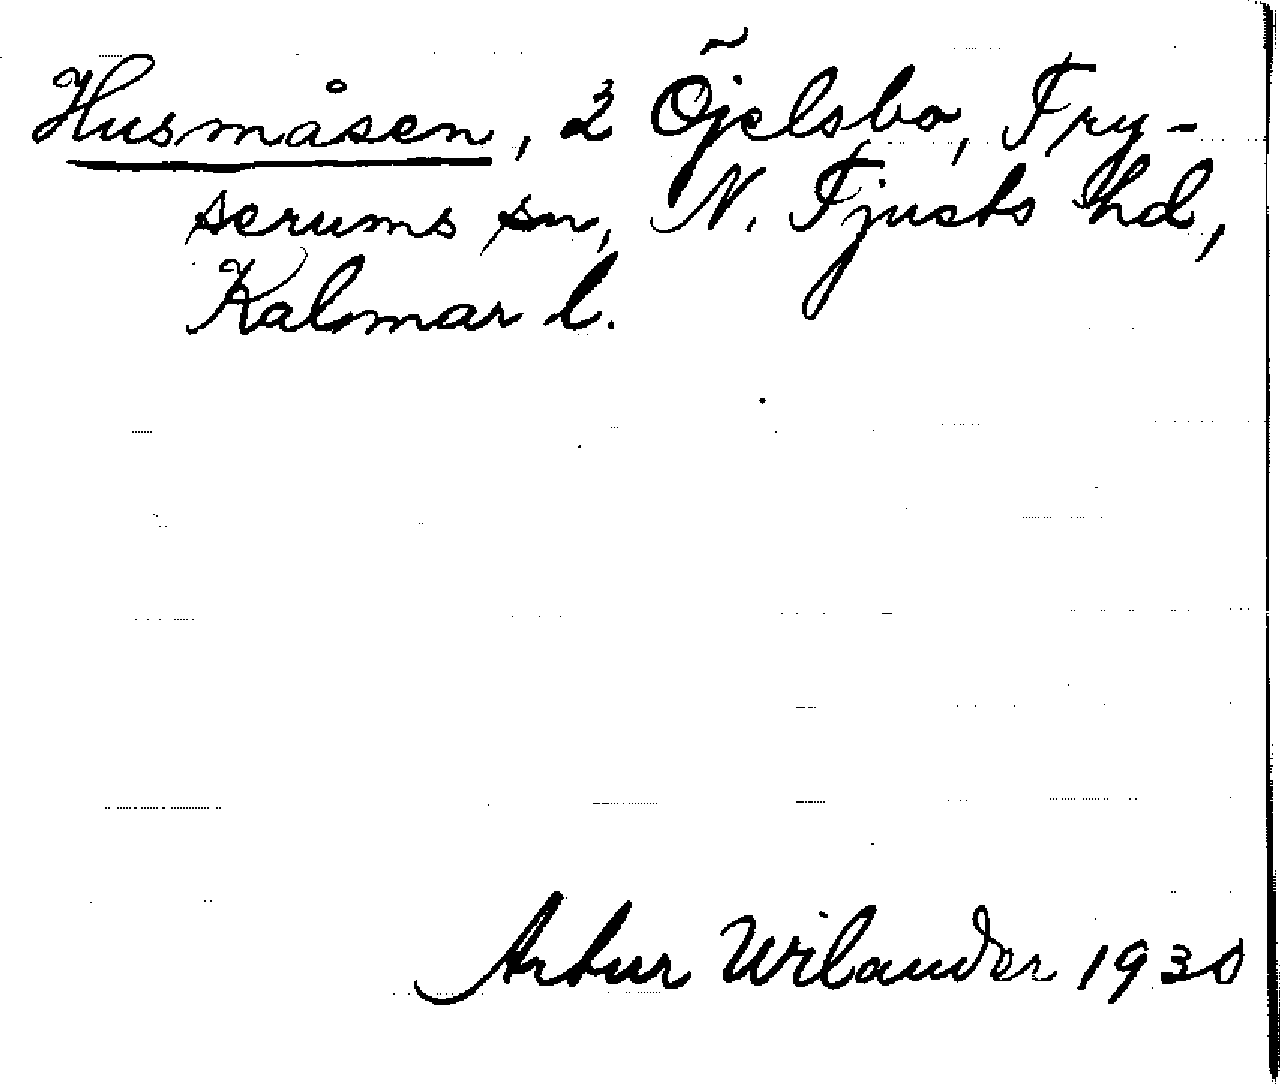 Husmåsen, 2 Öjelsbo, Fry-
serums sn, N. Tjusts hd,
Kalmar l.
Artur Wilander 1930